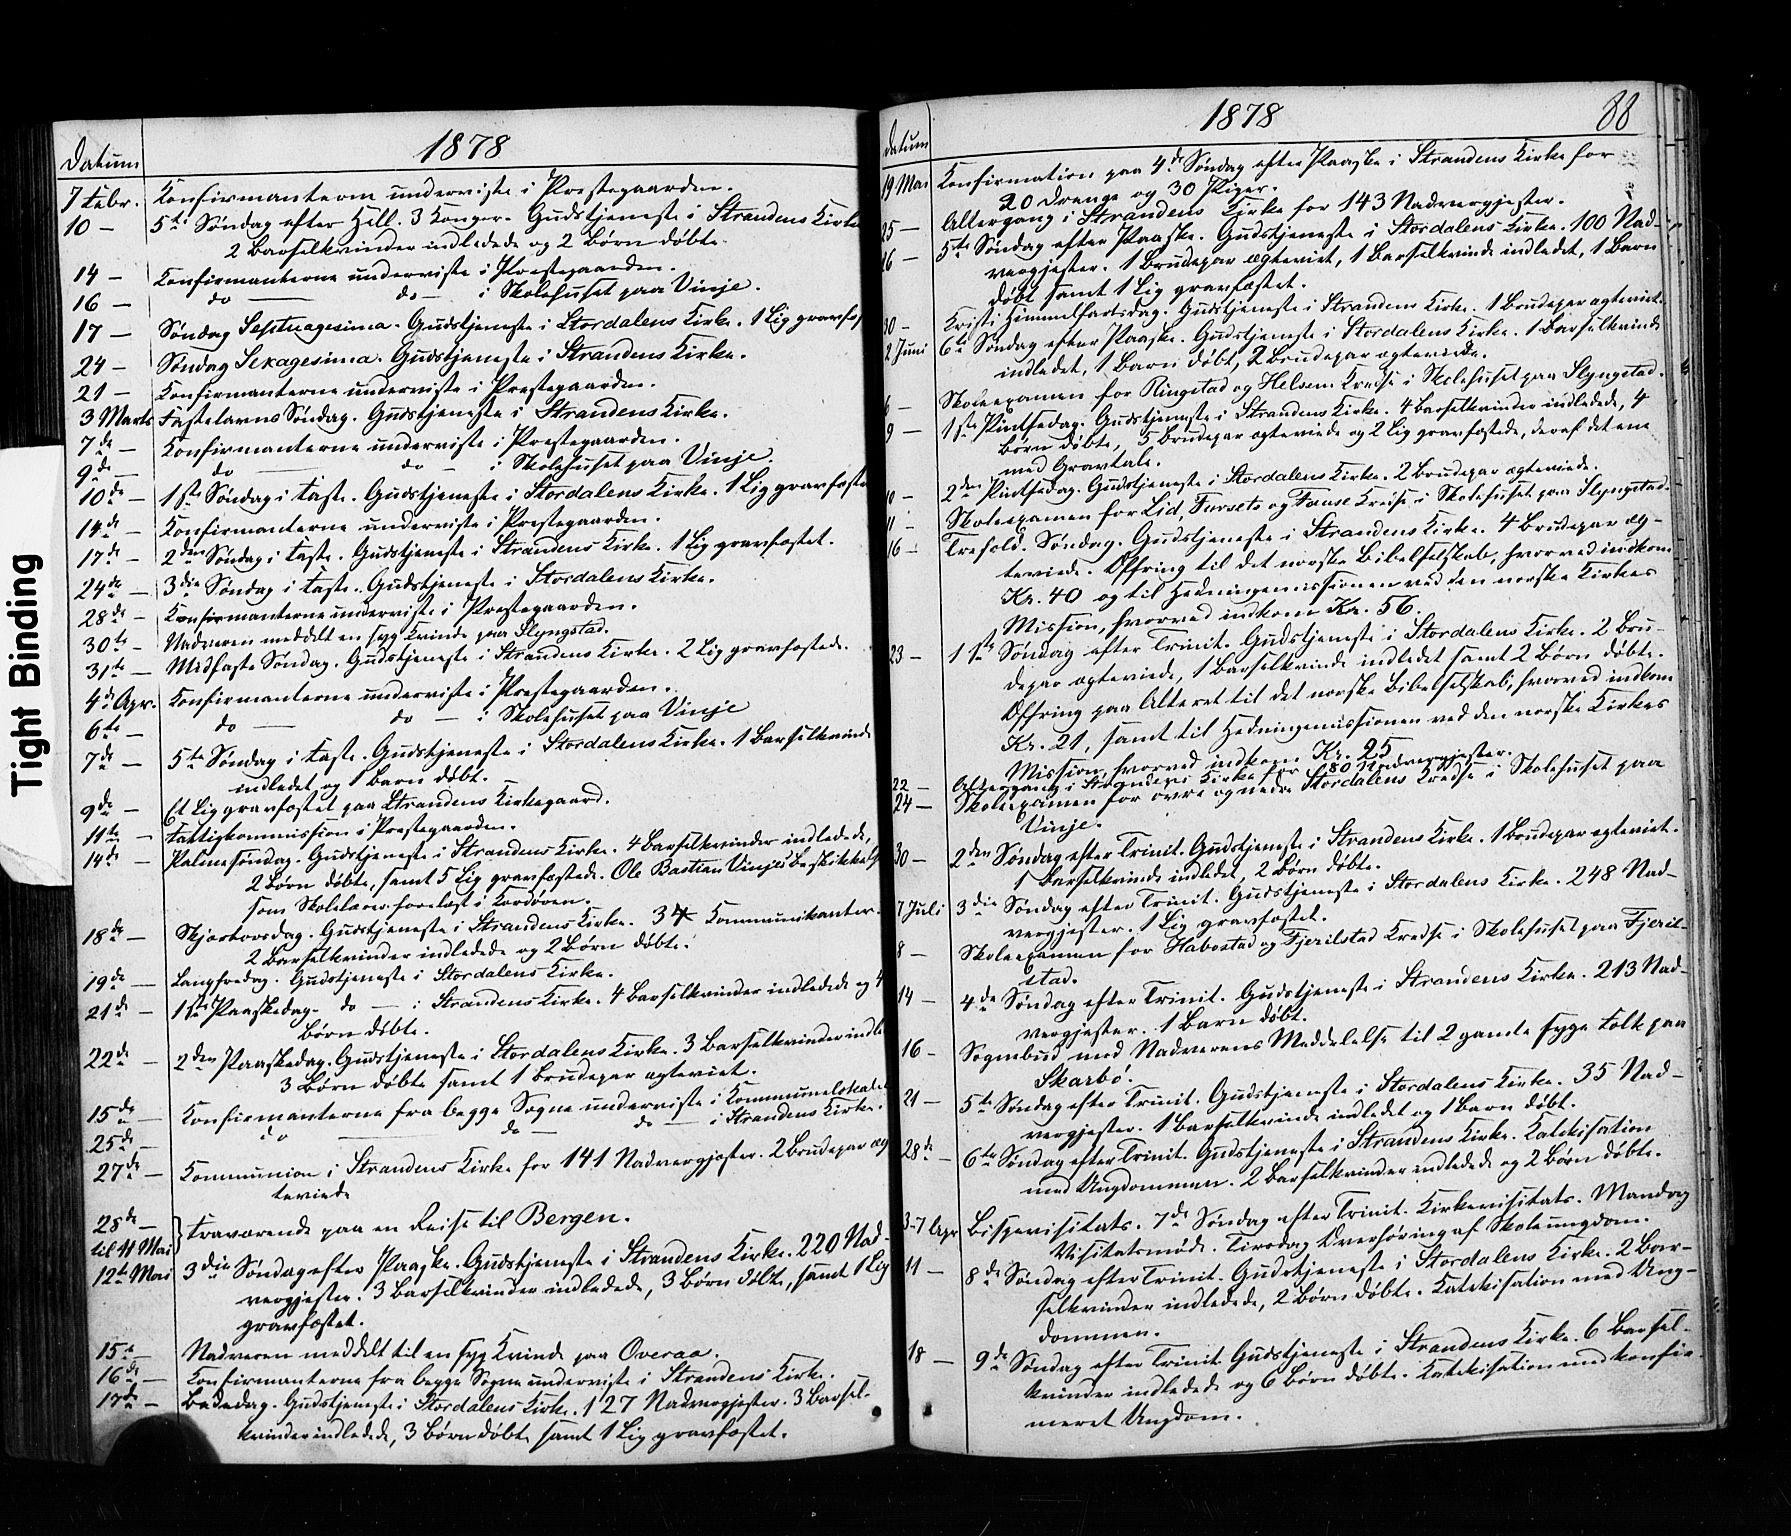 Tight Binding
Datum
1878
7 Febr. Konfirmanterne underviste i Prestegaarden.
10 — 5te Søndag efter Hell. 3 Konger. Gudstjeneste i Strandens Kirke
2 Barselkvinder indledede og 2 Børn døbte.
14 — Konfirmanterne underviste i Prestegaarden.
16 — do — do — i Skolehuset paa Vinje.
17 — Søndag Septuagesima. Gudstjeneste i Stordalens Kirke. 1 Lig gravfæs
24 — Søndag Sexagesima. Gudstjeneste i Strandens Kirke.
21 — Konfirmanterne underviste i Prestegaarden.
3 Marts Fastelavns Søndag. Gudstjeneste i Strandens Kirke.
7de — Konfirmanterne underviste i Prestegaarden.
9de — do — do — i Skolehuset paa Vinje.
10de — 1ste Søndag i Faste. Gudstjeneste i Stordalens Kirke. 1 Lig gravfæste
14de — Konfirmanterne underviste i Prestegaarden.
17de — 2den Søndag i Faste. Gudstjeneste i Strandens Kirke. 1 Lig gravfæstet.
24de — 3die Søndag i Faste. Gudstjeneste i Stordalens Kirke.
28de — Konfirmanterne underviste i Prestegaarden.
30te — Nadveren meddelt en syg Kvinde paa Slyngstad.
31te — Midfaste Søndag. Gudstjeneste i Strandens Kirke. 2 Lig gravfæstede.
4de Apr. Konfirmanterne underviste i Prestegaarden.
6te — do — do — i Skolehuset paa Vinje
7de — 5te Søndag i Faste. Gudstjeneste i Stordalens Kirke. 1 Barselkvinde
indledet og 1 Barn døbt.
9de — Et Lig gravfæstet paa Strandens Kirkegaard.
11te — Fattigkommission i Prestegaarden.
14de — Palmesøndag. Gudstjeneste i Strandens Kirke. 4 Barselkvinder indledede,
2 Børn døbte, samt 5 Lig gravfæstede. Ole Bastian Vinjes Beskikkelse
som Skolelærer forelæst i Kordøren.
18de — Skjærtorsdag. Gudstjeneste i Strandens Kirke. 34 Kommunikanter.
2 Barselkvinder indledede og 2 Børn døbte.
19de — Langfredag. Gudstjeneste i Stordalens Kirke.
21de — 1ste Paaskedag. do — i Strandens Kirke. 4 Barselkvinder indledede og 4
Børn døbte.
22de — 2den Paaskedag. Gudstjeneste i Stordalens Kirke. 3 Barselkvinder indle
3 Børn døbte samt 1 Brudepar ægteviet.
15de — Konfirmanterne fra begge Sogne underviste i Kommunelokalet
25de — do — do — do — i Strandens Kirke.
27de — Kommunion i Strandens Kirke for 141 Nadvergjester. 2 Brudepar æg
teviede
28de —
til 11 Mai } Fraværende paa en Reise til Bergen.
12te Mai 3die Søndag efter Paaske. Gudstjeneste i Strandens Kirke. 220 Nad-
vergjester. 3 Barselkvinder indledede, 3 Børn døbte, samt 1 Lig
gravfæstet.
15de — Nadveren meddelt til en syg Kvinde paa Overaa.
16de — Konfirmanterne fra begge Sogne underviste i Strandens Kirke.
17de — Bededag. Gudstjeneste i Stordalens Kirke. 127 Nadvergjester. 3 Barsel-
kvinder indledede, 3 Børn døbte samt 1 Lig gravfæstet.
Datum
1878
88
19 Mai Konfirmation paa 4de Søndag efter Paaske i Strandens Kirke for
20 Drenge og 30 Piger.
25 — Altergang i Strandens Kirke for 143 Nadvergjester.
26 — 5te Søndag efter Paaske. Gudstjeneste i Stordalens Kirke. 100 Nad-
vergjester. 1 Brudepar ægteviet, 1 Barselkvinde indledet, 1 Barn
døbt samt 1 Lig gravfæstet.
30 — Kristi Himmelfartsdag. Gudstjeneste i Strandens Kirke. 1 Brudepar ægteviet.
2 Juni 6te Søndag efter Paaske. Gudstjeneste i Stordalens Kirke. 1 Barselkvinde
indledet, 1 Barn døbt, 2 Brudepar ægteviede.
6 — Skoleexamen for Ringstad og Helsem Kredse i Skolehuset paa Slyngstad.
9 — 1ste Pintsedag. Gudstjeneste i Strandens Kirke. 4 Barselkvinder indledede, 4
Børn døbte, 5 Brudepar ægteviede og 2 Lig gravfæstede, deraf det ene
med Gravtale.
10 — 2den Pintsedag. Gudstjeneste i Stordalens Kirke. 2 Brudepar ægteviede.
11 — Skoleexamen for Lid, Fursets og Fause Kredse i Skolehuset paa Slyngstad.
16 — Trefold. Søndag. Gudstjeneste i Strandens Kirke. 4 Brudepar æg-
teviede. Offring til det norske Bibelselskab, hvorved indkom
Kr. 40 og til Hedningemissionen ved den norske Kirkes
Mission, hvorved indkom Kr. 56.
23 — 1ste Søndag efter Trinit. Gudstjeneste i Stordalens Kirke. 2 Bru-
depar ægteviede, 1 Barselkvinde indledet samt 2 Børn døbte.
Offring paa Alteret til det norske Bibelselskab, hvorved indkom
Kr. 21, samt til Hedningemissionen ved den norske Kirkes
Mission, hvorved indkom Kr. 25
22 — Altergang i Strandens Kirke for 80 Nadvergjester.
24 — Skoleexamen for øvre og nedre Stordalens Kredse i Skolehuset paa
Vinje.
30 — 2den Søndag efter Trinit. Gudstjeneste i Strandens Kirke. 1 Brudepar ægteviet.
1 Barselkvinde indledet, 2 Børn døbte.
7 Juli 3die Søndag efter Trinit. Gudstjeneste i Stordalens Kirke. 248 Nad-
vergjester. 1 Lig gravfæstet.
8 — Skoleexamen for Habostad og Fjerilstad Kredse i Skolehuset paa Fjeril-
stad.
14 — 4de Søndag efter Trinit. Gudstjeneste i Strandens Kirke. 213 Nad-
vergjester. 1 Barn døbt.
16 — Sognebud med Nadverens Meddelelse til 2 gamle syge Folk paa
Skarbø.
21 — 5te Søndag efter Trinit. Gudstjeneste i Stordalens Kirke. 35 Nad-
vergjester. 1 Barselkvinde indledet og 1 Barn døbt.
28de — 6te Søndag efter Trinit. Gudstjeneste i Strandens Kirke. Katekisation
med Ungdommen. 2 Barselkvinder indledede og 2 Børn døbte.
3-7 Bispevisitats. 7de Søndag efter Trinit. Kirkevisitats. Mandag
Visitatsmøde. Tirsdag Overhøring af Skoleungdom.
11 — 8de Søndag efter Trinit. Gudstjeneste i Stordalens Kirke. 2 Bar-
selkvinder indledede, 2 Børn døbte. Katekisation med Ung-
dommen.
18 — 9de Søndag efter Trinit. Gudstjeneste i Strandens Kirke. 6 Barsel-
kvinder indledede og 6 Børn døbte. Katekisation med konfir-
meret Ungdom.